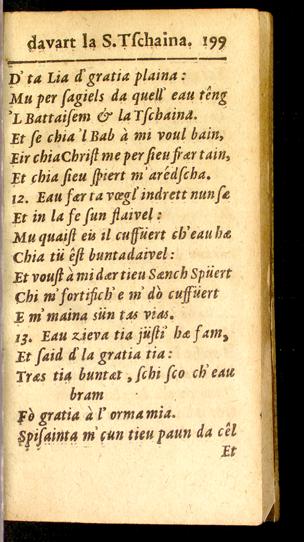 davart la S. Tſchaina. 199
D' ta Lia d' gratia plaina:
Mu per ſagiels da quell' eau têng
'L Battaiſem & la Tſchaina.
Et ſe chia 'l Bab à mi voul bain,
Eir chia Chriſt me per ſieu frær tain,
Et chia ſieu ſpiert m' arédſcha.
12. Eau fær ta vœgl' indrett nun ſæ
Et in la fe ſun flaivel:
Mu quaiſt eis il cuffüert ch' eau hæ
Chia tü êſt buntadaivel:
Et vouſt à mi dær tieu Sænch Spüert
Chi m' fortifich' e m' dò cuffüert
E m' maina sün tas vias.
13. Eau zieva tia jüſti' hæ fam,
Et ſaid d' la gratia tia:
Træs tia buntæt, ſchi ſco ch' eau
bram
Fò gratia à l' orma mia.
Spiſainta m' cun tieu paun da cêl
Et